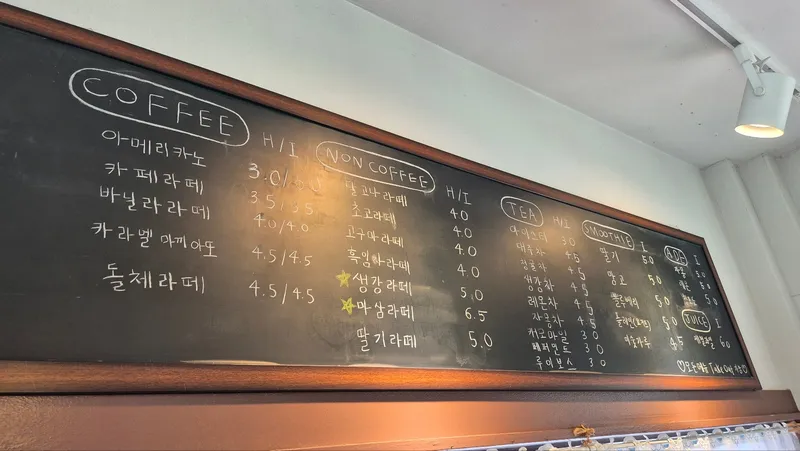 COFFEE
H/I
아메리카노 3.0/
카페라떼 3.5/3.5
바닐라라떼 4.0/4.0
카라멜 마끼아또 4.5/4.5
돌체라떼 4.5/4.5
NON COFFEE
H/I
달고나라떼 4.0
초코라떼 4.0
고구마라떼 4.0
흑임자라떼 4.0
생강라떼 5.0
마상라떼 6.5
딸기라떼 5.0
TEA
H/I
3.0
대추차 4.5
4.5
생강차 4.5
레몬차 4.5
자몽차 4.5
캐모마일 3.0
페퍼민트 3.0
루이보스 3.0
SMOOTHIE
I
딸기 5.0
망고 5.0
블루베리 5.0
5.0
미숫가루 4.5
ADE
I
자몽 5.0
레몬 5.0
5.0
JUICE
I
6.0
Take Out